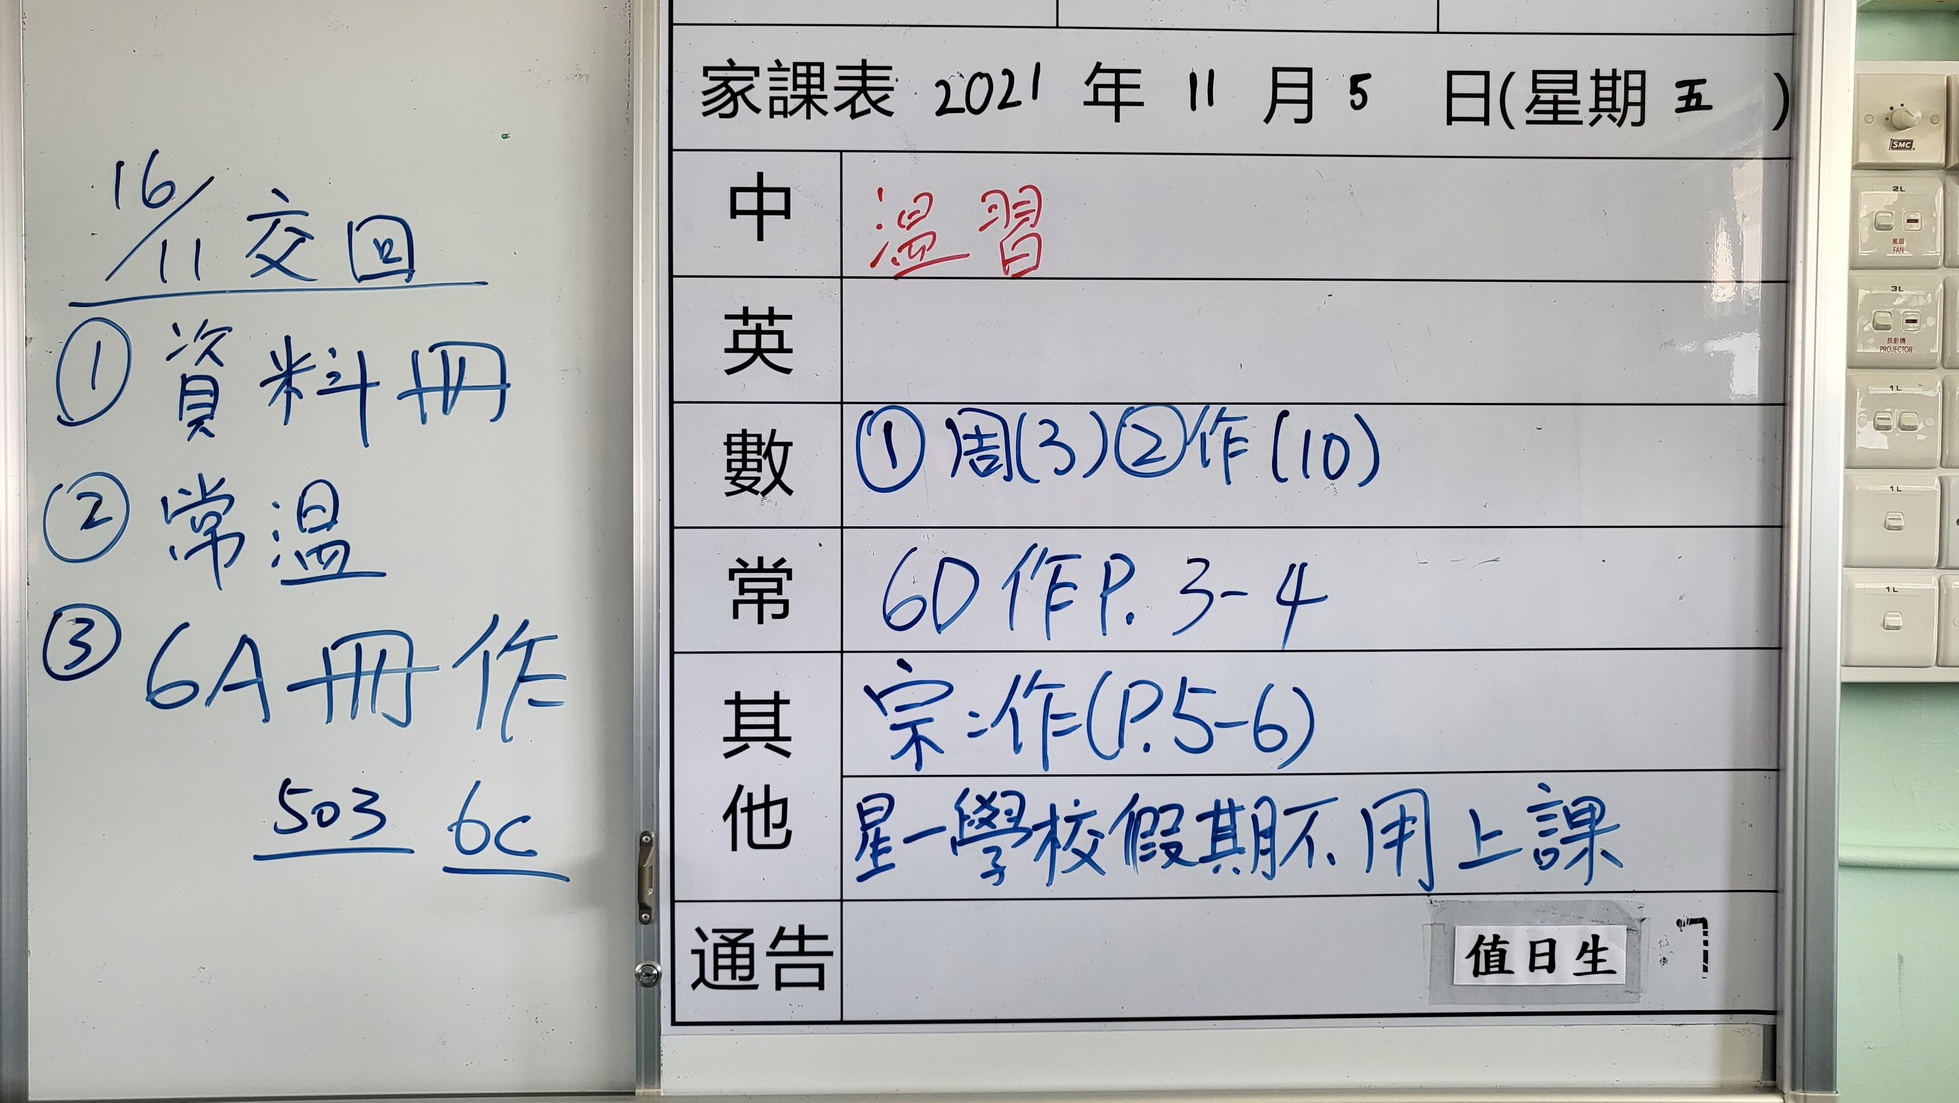 16/11 交回
① 資料冊
② 常溫
③ 6A 冊作
503 6C
家課表 2021 年 11 月 5 日(星期 五 )
中 溫習
英
數 ① 周(3) ② 作(10)
常 6D 作 P. 3-4
其他 宗:作(P.5-6)
星一學校假期不用上課
通告 值日生
SMC
2L
風扇
FAN
3L
投影機
PROJECTOR
1L
1L
1L